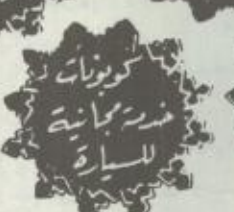 كوبونات
خدمة مجانية
للسيارة